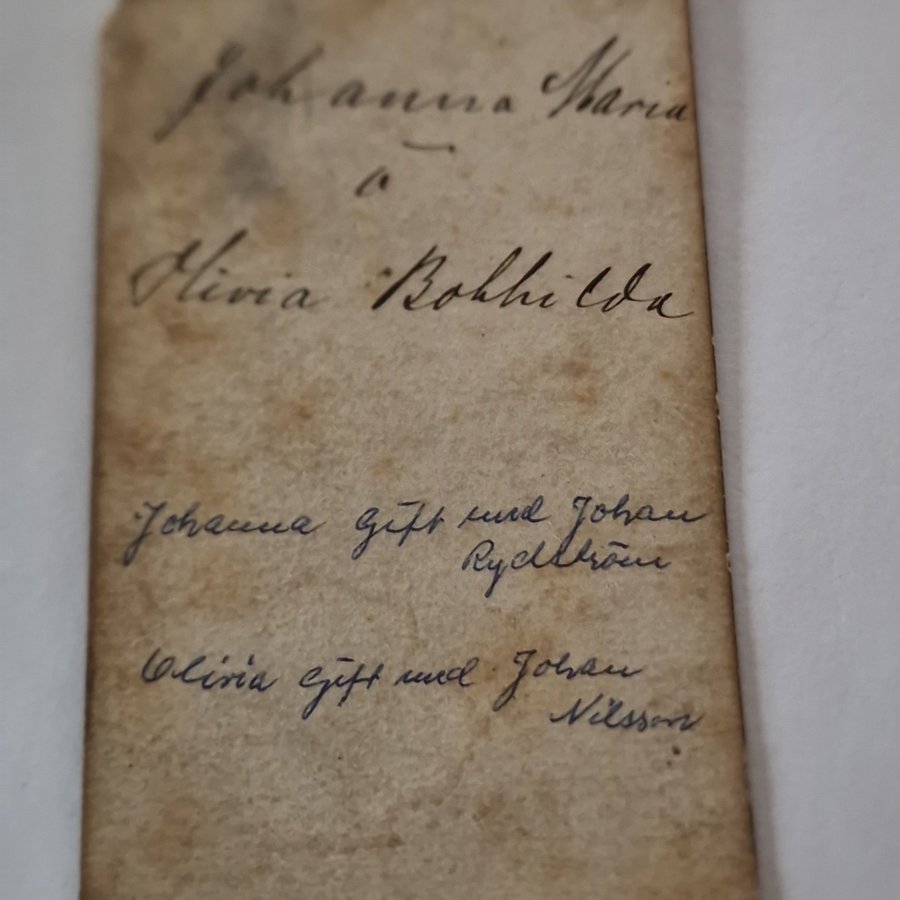 Johanna Maria
o
Olivia Bothilda
Johanna gift med Johan
Rydström
Olivia gift med Johan
Nilsson